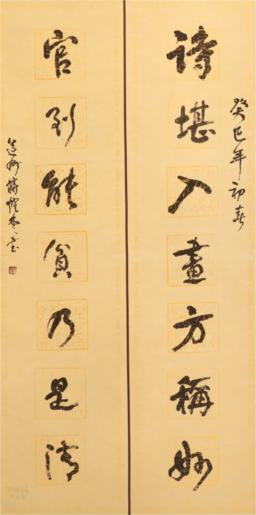 癸巳年初春
诗堪入畫方稱妙
官到能貧乃是清